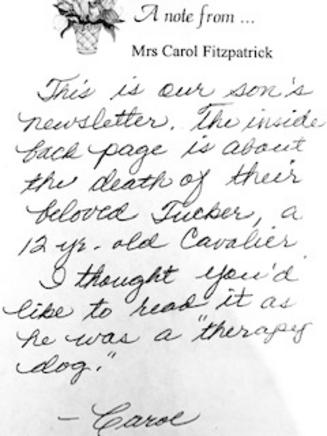 A note from ...
Mrs Carol Fitzpatrick
This is our son's
newsletter. The inside
back page is about
the death of their
beloved Tucker, a
12 yr. old Cavalier
I thought you'd
like to read it as
he was a "therapy
dog."
- Carol